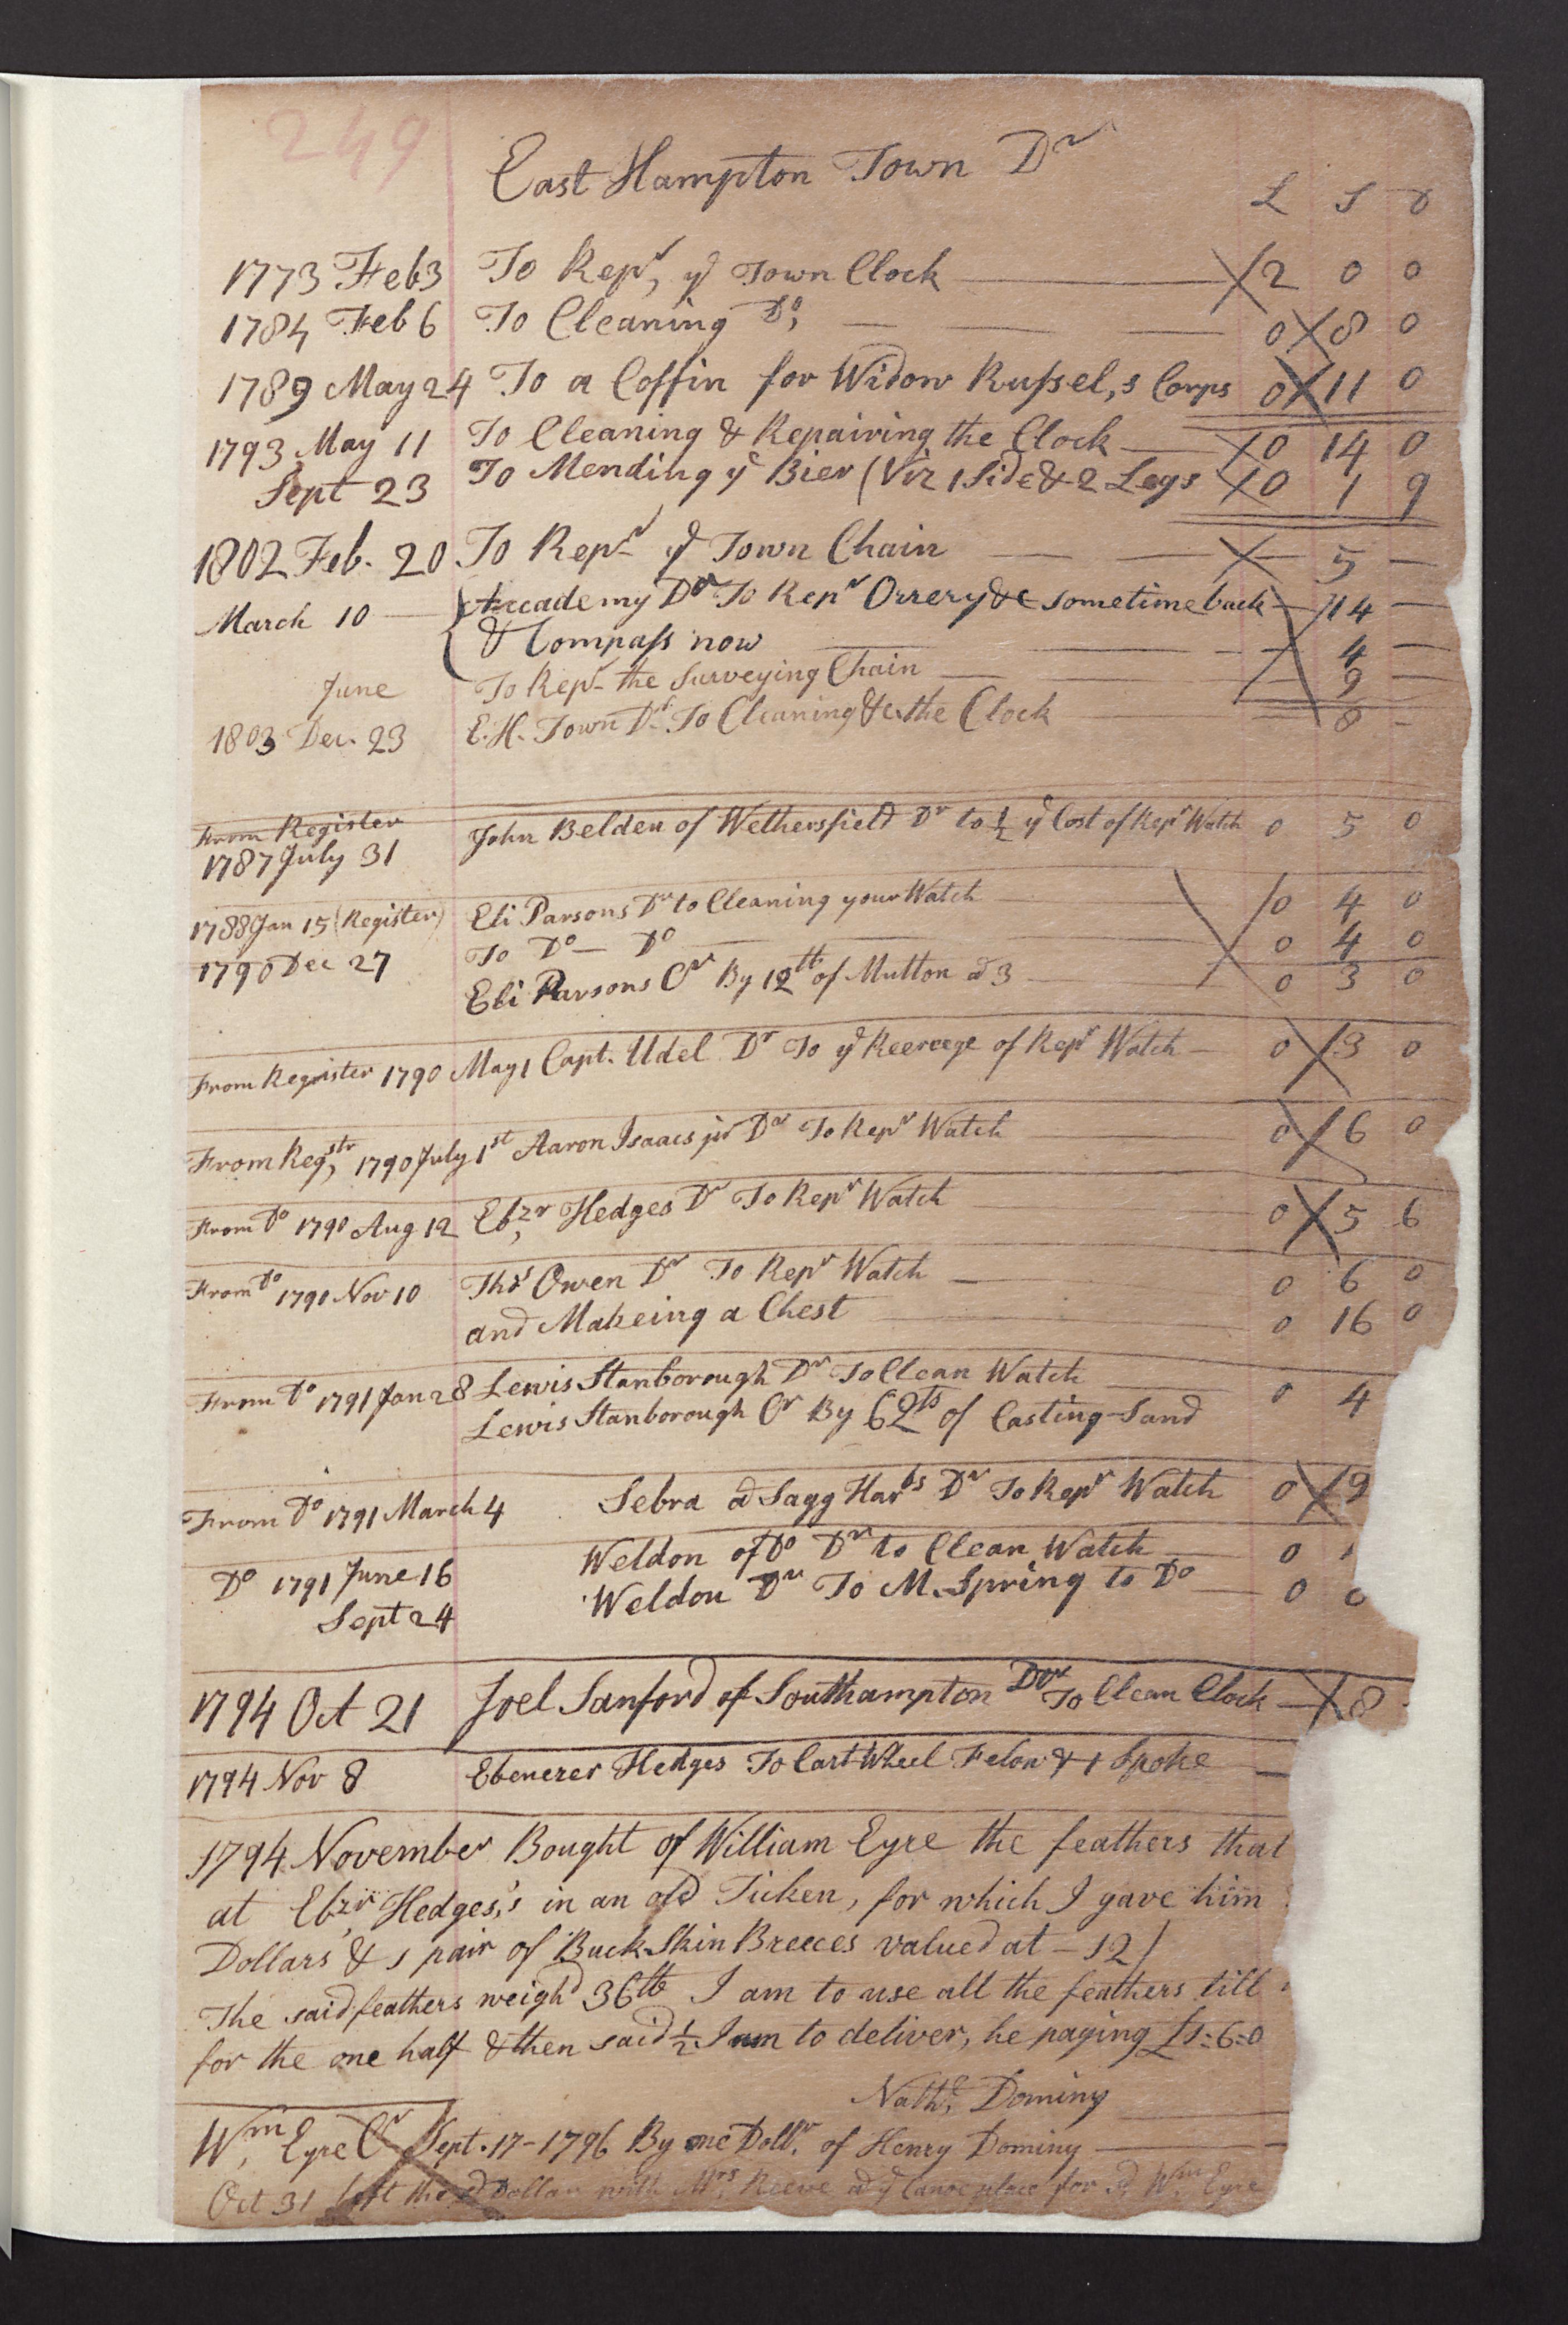 249
East Hampton Town Dr
£ S D
1773 Feb 3 To Repr, ye Town Clock 2 0 0
1784 Feb 6 To Cleaning Do, 0 8 0
1789 May 24 To a Coffin for Widow Russel,s Corps 0 11 0
1793 May 11 To Cleaning & Repairing the Clock 0 14 0
Sept 23 To Mending ye Bier (Viz 1 Side & 2 Legs 0 1 9
1802 Feb. 20 To Repr ye Town Chain 5 —
March 10 — Accademy Dr To Repr Orrery &c sometime back 14 —
& Compass now 4 —
June To Repr the Surveying Chain 9 —
1803 Dec. 23 E. H. Town Dr To Cleaning &c the Clock 8 -
From Register John Belden of Wethersfield Dr to ½ ye Cost of Repr Watch 0 5 0
1787 July 31
1788 Jan 15 (Register) Eli Parsons Dr to Cleaning your Watch 0 4 0
1790 Dec 27 To Do — Do 0 4 0
Eli Parsons Cr By 12 lb of Mutton @ 3 0 3 0
From Register 1790 May 1 Capt. Udel Dr To ye of Repr Watch 0 3 0
From Regstr, 1790 July 1st Aaron Isaacs jr Dr To Repr Watch 0 6 0
From Do 1790 Aug 12 Ebzr, Hedges Dr To Repr Watch 0 5 6
From Do 1791 Nov 10 Thos Owen Dr To Repr Watch 0 6 0
and Makeing a Chest 0 16 0
From Do 1791 Jan 28 Lewis Stanborough Dr To Clean Watch 0 4
Lewis Stanborough Cr By 62 lbs of Casting-Sand
From Do 1791 March 4 Sebra @ Sagg Harbs Dr To Repr Watch 0 9
Do 1791 June 16 Weldon of Do Dr to Clean Watch 0
Sept 24 Weldon Dr To M. Spring to Do 0
1794 Oct 21 Joel Sanford of Southampton Dr To Clean Clock 8
1794 Nov 8 Ebenezer Hedges To Cart Wheel Felow & 1 Spoke
1794 November Bought of William Eyre the feathers that
at Ebzr, Hedges,s in an old Ticken, for which I gave him
Dollars & 1 pair of Buck-Skin Breeces valued at — 12/
The said feathers weighd 36 lb I am to use all the feathers till
for the one half & then said ½ I am to deliver, he paying £1=6=0
Nathl, Dominy
Wm, Eyre Cr Sept. 17 - 1796 By one Dollr, of Henry Dominy
Oct 31 left the sd Dollar with Mrs, Reeve @ ye Canoe place for sd, Wm, Eyre